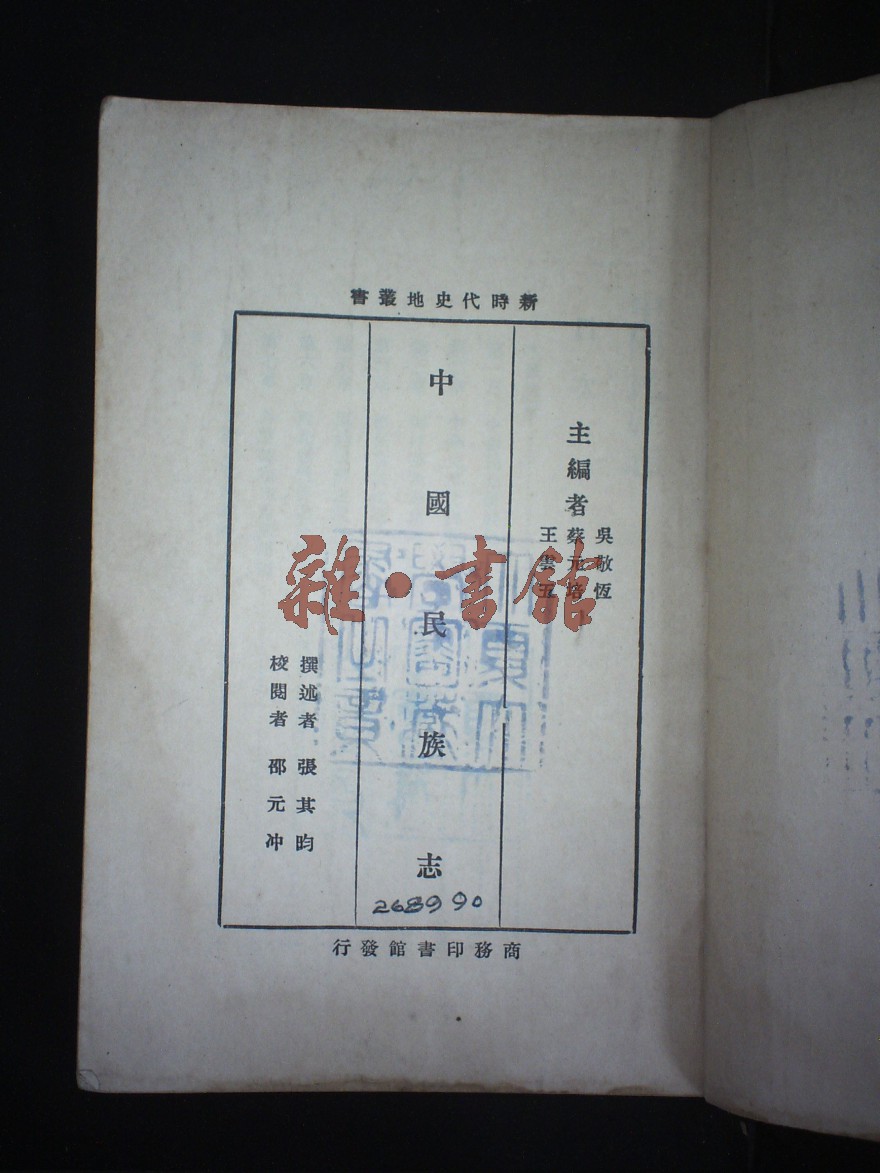 新時代史地叢書
主編者
吳敬恆
蔡元培
王雲五
中國民族志
撰述者 張其昀
校閱者 邵元冲
268990
商務印書館發行
雜·書館